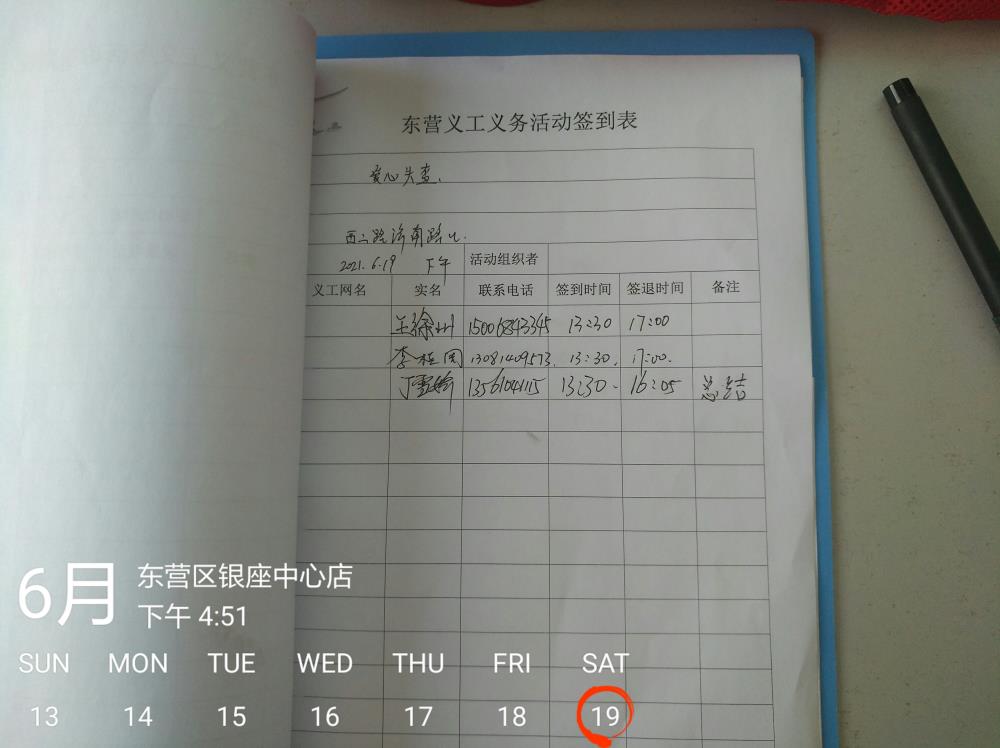 东营义工义务活动签到表
爱心头盔.
西二路济南路口.
2021.6.19 下午 活动组织者
义工网名 实名 联系电话 签到时间 签退时间 备注
15006843345 13:30 17:00
李桂园 13081409573. 13:30. 17:00.
丁雪婷 13561044115 13:30- 16:05 总结
6月 东营区银座中心店
下午 4:51
SUN MON TUE WED THU FRI SAT
13 14 15 16 17 18 19